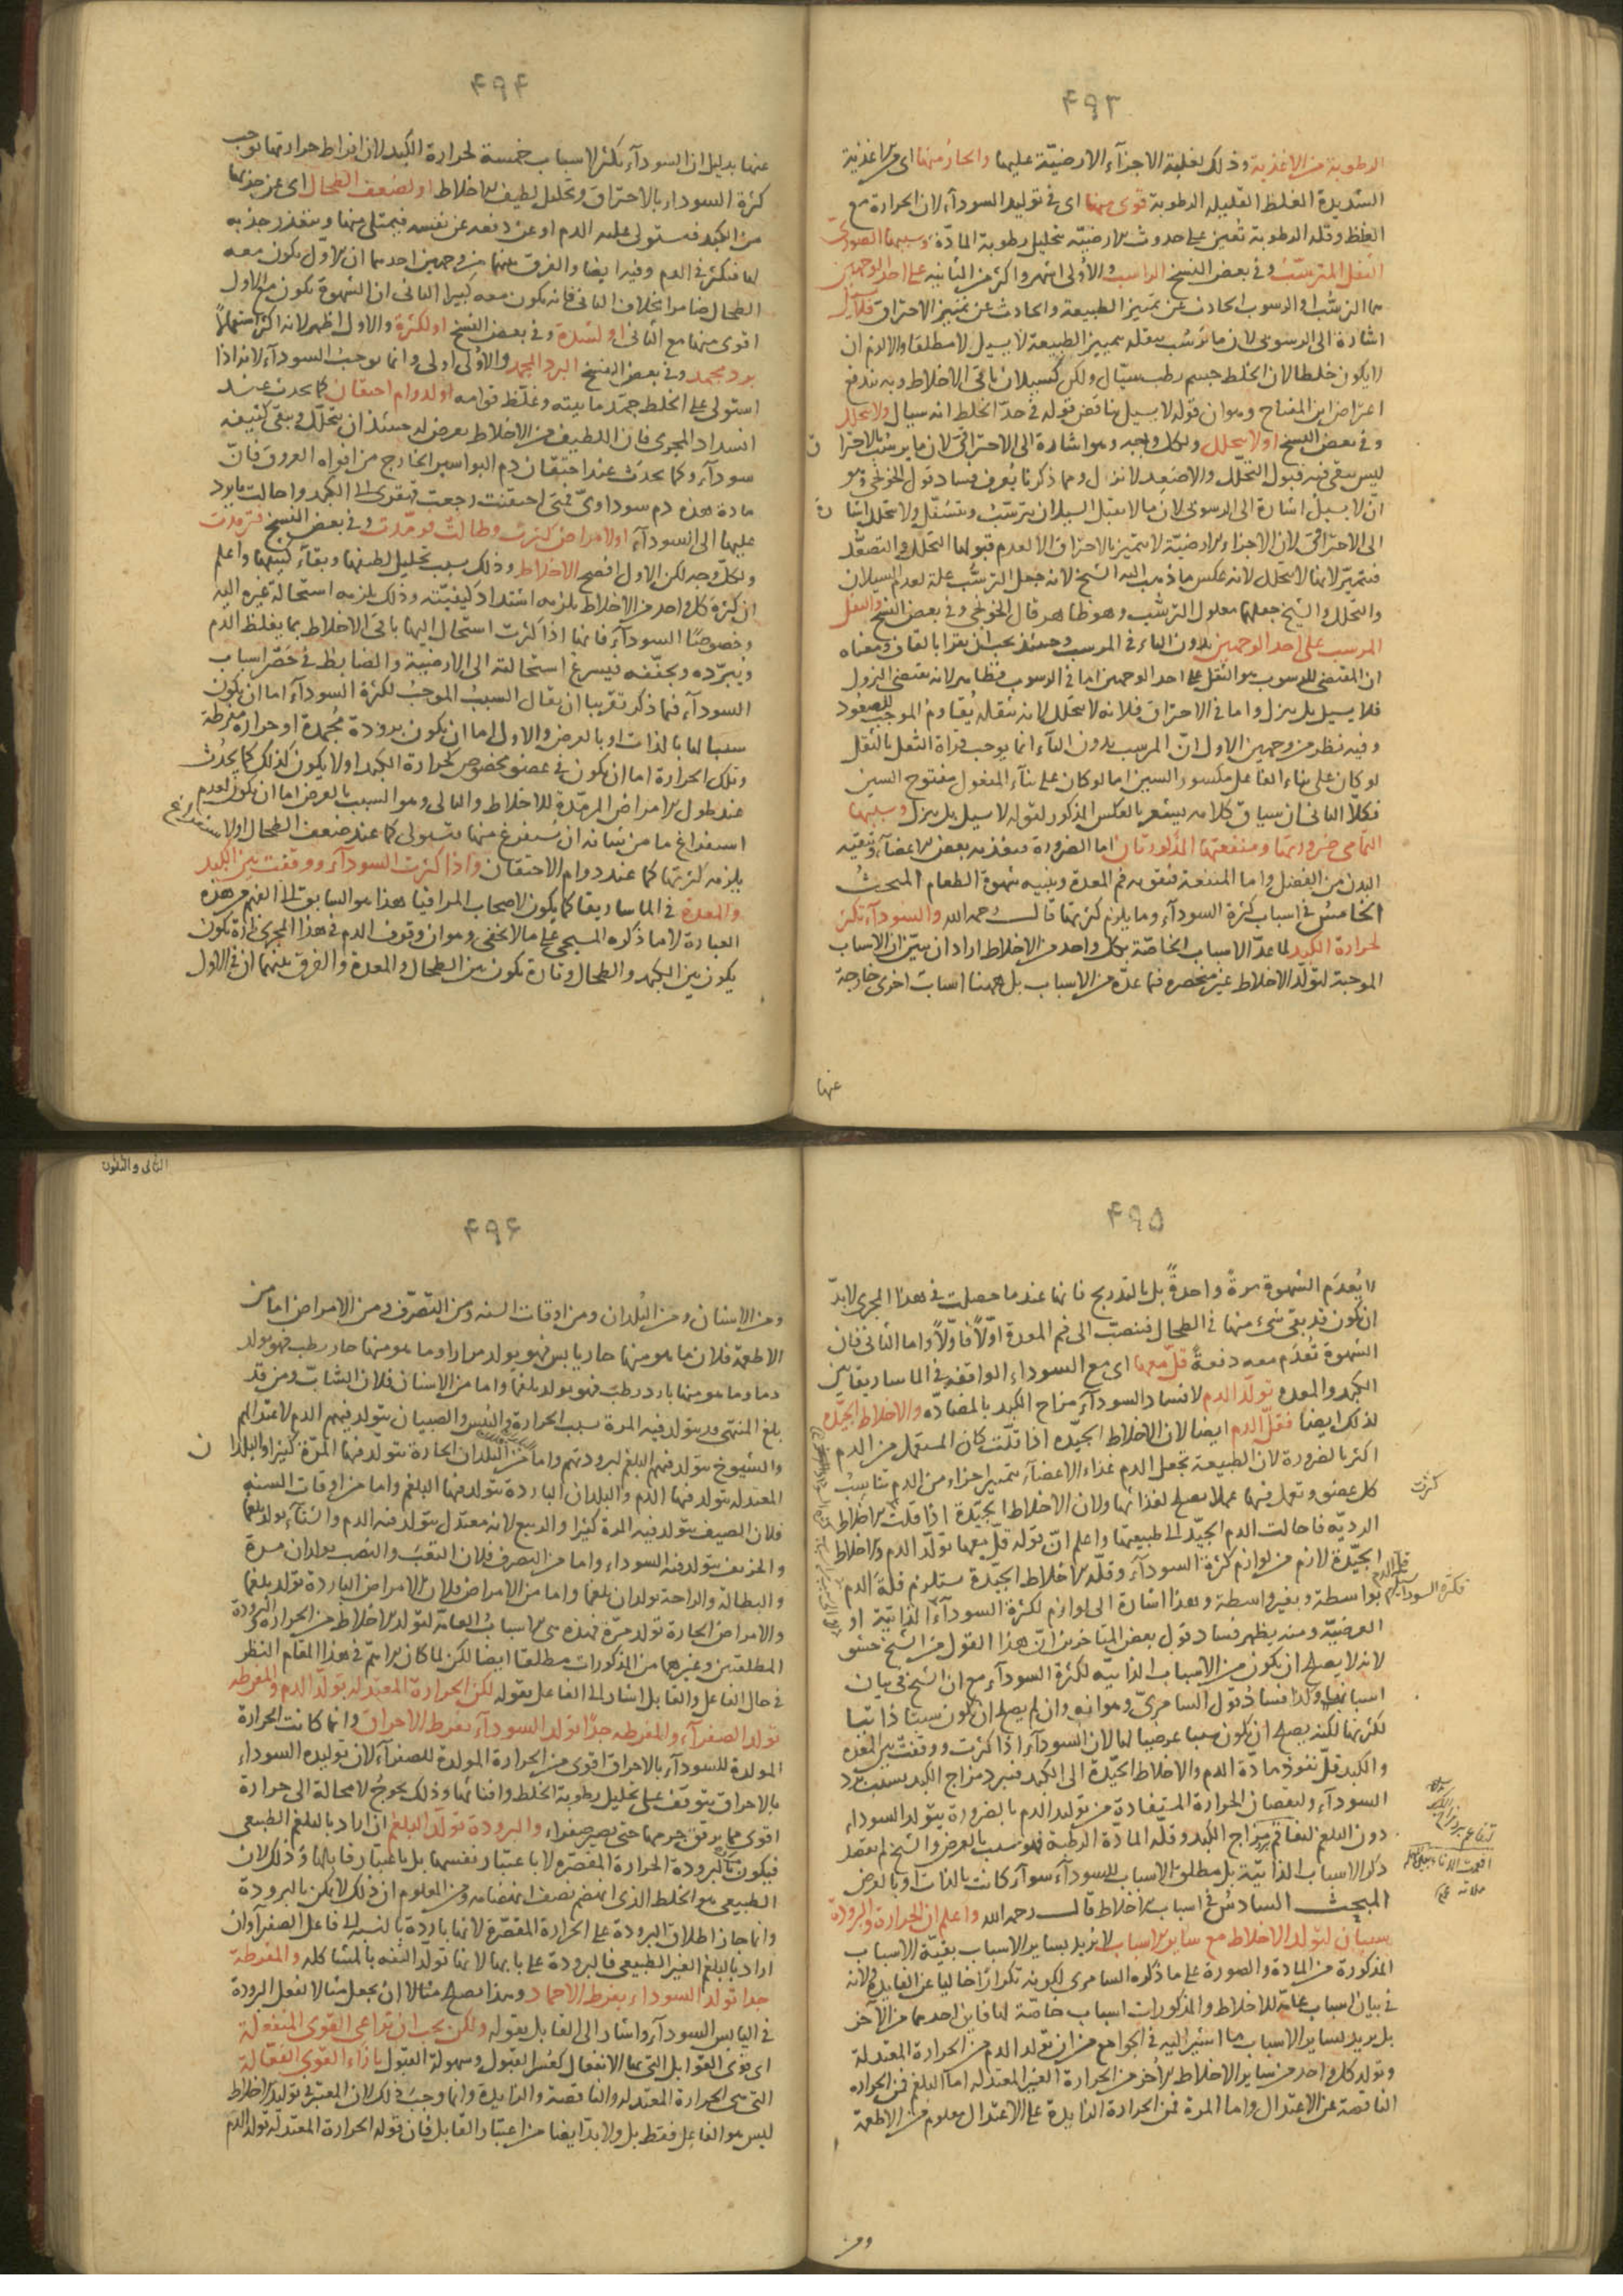 ۴۹۳
الرطوبة من الاغذية وذلك لغلبة الاجزآء الارضيّة عليها والحارّ منها اى من الاغذية
الشديدة الغلظ القليلة الرطوبة قوى منها اى فى توليد السودآء لان الحرارة مع
الغلظ وقلة الرطوبة تعين على حدوث الارضيّة بتحليل رطوبة المادّة وسببها الصورىّ
الثفل المترسّب وفى بعض النسخ الراسب والأولى اشهر واكثر من الثانية على احد الوجهين
اما الترسّب او الرسوب الحادث عن تمييز الطبيعة والحادث عن تمييز الاحتراق فلا يسيل
اشارة الى الرسوبى لان ما ترسّب بثقله بتمييز الطبيعة لا يسيل لا مطلقا والا لزم ان
لا يكون خلطا لان الخلط جسم رطب سيّال ولكن كسيلان باقى الاخلاط وبه يندفع
اعتراض ابن المفتاح وهو ان قوله لا يسيل يناقض قوله فى حدّ الخلط انه سيال ولا يتحلل
وفى بعض النسخ او لا يتحلل ولكل وجه وهو اشارة الى الاحتراقى لان ما يرسب بالاحترا ق
ليس يبقى فيه قبول التحلّل والا صعد لا نزل ومما ذكرنا يعرف فساد قول الخونجى وهو
انّ لا يسيل اشارة الى الرسوبى لان ما لا يقبل السيلان يترسّب ويتسفّل ولا يتحلل اشا رة
الى الاحتراقى لان الاجزاء الارضيّة لا تتميز بالاحتراق الا لعدم قبولها التحلّل والتصعّد
فتتميّز لانها لا تتحلل لانه عكس ما ذهب اليه الشيخ لانه جعل الترسّب علة لعدم السيلان
والتحلل والشيخ جعلهما معلول الترسّب وهو ظاهر قال الخونجى وفى بعض النسخ والثقل
المرسب على احد الوجهين بدون التاء فى المرسب وحينئذ يجب ان يقرا بالقاف ومعناه
ان المقتضى للرسوب هو الثقل على احد الوجهين اما فى الرسوب فظاهر لانه يقتضى النزول
فلا يسيل بل ينزل واما فى الاحتراق فلانه لا يتحلل لانه بثقله يقاوم الموجب للصعود
وفيه نظر من وجهين الاول انّ المرسب بدون التآء انما يوجب قراة الثفل بالثقل
لو كان على بناء الفاعل مكسور السين اما لو كان على بنآء المفعول مفتوح السين
فكلّا الثانى ان سياق كلامه يشعر بالعكس المذكور لقوله لا يسيل بل ينزل وسببها
التمامى ضرورتها ومنفعتها المذكورتان اما الضرورة فتغذية بعض الاعضآء وتنقية
البدن من الفضل واما المنفعة فتقوية فم المعدة وتنبيه شهوة الطعام المبحث
الخامس فى اسباب كثرة السودآء وما يلزم كثرتها قال رحمه الله والسودآء تكثر
لحرارة الكبد لما عدّ الاسباب الخاصّة بكل واحد من الاخلاط اراد ان يبيّن ان الاسباب
الموجبة لتولّد الاخلاط غير منحصرة فيما عدّه من الاسباب بل ههنا اسباب اخرى خارجة
عنها
۴۹۴
عنها بدليل ان السودآء تكثر لاسباب خمسة لحرارة الكبد لان افراط حرارتها يوجب
كثرة السودا بالاحتراق وتحلل لطيف الاخلاط او لضعف الطحال اى عن جذبها
من الكبد فيستولى على الدم او عن دفعه عن نفسه فيمتلى منها ويتعذر جذبه
لها فتكثر فى الدم وفيه ايضا والفرق بينهما من وجهين احدهما ان الاوّل يكون معه
الطحال ضامرا بخلاف الثانى فانه يكون معه كبيرا الثانى ان الشهوة تكون مع الاول
اقوى منها مع الثانى او لشدة وفى بعض النسخ او لكثرة والاول اظهر لانه اكثر استعمالاً
برد مجمد وفى بعض النسخ البرد المجمد والاول اولى وانما يوجب السودآء لانه اذا
استولى على الخلط جمّد مائيته وغلّظ قوامه او لدوام احتقان كما يحدث عند
انسداد المجرى فان اللطيف من الاخلاط يعرض له حينئذ ان يتحلّل ويبقى كثيفه
سودآء وكما يحدث عند احتقان دم البواسير الخارج من افواه العروق فانّ
مادة هذه دم سوداوىّ فمتى احتقنت رجعت قهقرى الى الكبد واحالت ما يرد
عليها الى السودآء او لامراض كثرت وطالت فرمّدت وفى بعض النسخ فترمدت
ولكلّ وجه لكن الاول افصح الاخلاط وذلك بسبب تحليل لطيفها وبقآء كثيفها واعلم
ان كثرة كل واحد من الاخلاط يلزمه اشتداد كيفيّته وذلك يلزمه استحالة غيره اليه
وخصوصًا السودآء فانها اذا كثرت استحال اليها باقى الاخلاط بما يغلظ الدم
ويبرّده ويجفّفه فيسرع استحالته الى الارضيّة والضابط فى حَصْر اسباب
السودآء فيما ذكر تقريبا ان يقال السبب الموجب لكثرة السودآء اما ان يكون
سببا لها بالذات او بالعرض والاول اما ان يكون برودة مُجمدة او حرارة مفرطة
وتلك الحرارة اما ان تكون فى عضو مخصوص كحرارة الكبد او لا يكون كذلك كما يحدث
عند طول الامراض المرمّدة للاخلاط والثانى وهو السبب بالعرض اما ان يكون لعدم
استفراغ ما من شانه ان يُستفرغ منها فتستولى كما عند ضعف الطحال او لا
يلزمه كثرتها كما عند دوام الاحتقان واذا كثرت السودآء ووقفت بين الكبد
والمعدة فى الماساريقا كما يكون لاصحاب المراقيا هذا هو السابق الى الفهم من هذه
العبارة لا ما ذكره المسيحى على ما لا يخفى وهو ان وقوف الدم فى هذا المجرى تارة يكون
يكون بين الكبد والطحال وتارة يكون بين الطحال والمعدة والفرق بينهما ان فى الاول
۴۹۵
لا يُعدَم الشهوة مرةً واحدةً بل بالتدريج فانها عندما حصلت فى هذا المجرى لا بدّ
ان يكون قد بقى شىء منها فى الطحال فينصبّ الى فم المعدة اوّلاً فاوّلاً واما الثانى فان
الشهوة تُعدَم معه دفعةً قلّ معها اى مع السوداء الواقفة فى الماساريقا بين
الكبد والمعدة تولّد الدم لافساد السودآء مزاج الكبد بالمضادّة والاخلاط الجيّدة
لذلك ايضا فقلّ الدم ايضا لان الاخلاط الجيّدة اذا قلّت كان المستعمل من الدم
اكثر بالضرورة لان الطبيعة تجعل الدم غذاء الاعضآء بتمييز اجزاء من الدم تناسب
كل عضو وتعمل فيها عملا يصلح لغذائها ولان الاخلاط الجيّدة اذا قلت الاخلاط
كثرت
الرديّة فاحالت الدم الجيّد الى طبيعتها واعلم انّ قوله قلّ معها تولّد الدم والاخلاط
الجيّدة لازم من لوازم كثرة السودآء وقلّة الاخلاط الجيّدة يستلزم قلة الدم
فكثرة السودآء
بواسطة وبغير واسطة وهذا اشارة الى لوازم لكثرة السودآء الذاتيّة او
العرضيّة ومنه يظهر فساد قول بعض المتاخرين انّ هذا القول من الشيخ حشو
لانه لا يصلح ان يكون من الاسباب الذاتيّة لكثرة السودآء مع ان الشيخ فى بيان
اسبابها وكذا فساد قول السامرىّ وهو انه وان لم يصلح ان يكون سببا ذاتيا
لكثرتها لكنه يصلح ان يكون سببا عرضيا لها لان السودآء اذا كثرت ووقفت بين المعدة
والكبد قلّ نفوذ مادّة الدم والاخلاط الجيّدة الى الكبد فيبرد مزاج الكبد بسبب برد
السودآء ولنقصان الحرارة المستفادة من توليد الدم بالضرورة يتولّد السوداء
دون البلغم لبقاء مزاج الكبد وقلّة المادّة الرطبة فهو سبب بالعرض والشيخ لم يقصد
ذكر الاسباب الذاتيّة بل مطلق الاسباب للسودآء سوآء كانت بالذات او بالعرض
المبحث السادس فى اسباب الاخلاط قال رحمه الله واعلم ان الحرارة والبرودة
سببان لتولد الاخلاط مع ساير الاسباب لا يريد بساير الاسباب بقيّة الاسباب
المذكورة من المادة والصورة على ما ذكره السامرى لكونه تكرارًا خاليا عن الفايدة ولانه
فى بيان اسباب عامّة للاخلاط والمذكورات اسباب خاصّة لها فاين احدهما من الآخر
بل يريد بساير الاسباب ما اشير اليه فى الجوامع من ان تولد الدم من الحرارة المعتدلة
وتولد كل واحد من ساير الاخلاط الأخر من الحرارة الغير المعتدلة اما البلغم فمن الحرارة
الناقصة عن الاعتدال واما المرة فمن الحرارة الزايدة على الاعتدال معلوم من الاطعمة
ومن
الثانى والثلثون
۴۹۶
ومن الاسنان ومن البُلدان ومن اوقات السنه ومن التصرّف ومن الامراض اما من
الاطعمة فلان ما هو منها حار يابس فهو يولد مرارا وما هو منها حار رطب فهو يولد
دما وما هو منها بارد رطب فهو يولد بلغما واما من الاسنان فلان الشابّ ومن قد
بلغ المنتهى قد يتولد فيه المرة بسبب الحرارة واليبس والصبيان يتولد فيهم الدم لاعتدالهم
والشيوخ يتولد فيهم البلغم لبرودتهم واما من البلدان الحارة يتولد فيها المرّة كثيرا والبلدا ن
المعتدلة يتولد فيها الدم والبلدان الباردة يتولد فيها البلغم واما من اوقات السنة
فلان الصيف يتولد فيه المرة كثيرا والربيع لانه معتدل يتولد فيه الدم والشتآء يولد بلغما
والخريف يتولد فيه السوداء واما من التصرف فلان التعب والنصب يولدان مرة
والبطالة والراحة يولدان بلغما واما من الامراض فلان الامراض الباردة تولد بلغما
والامراض الحارة تولد مرّة فهذه هى الاسباب العامّة لتولد الاخلاط من الحرارة والبرودة
المطلقتين وغيرهما من المذكورات مطلقا ايضا لكن لما كان الاهمّ فى هذا المقام النظر
فى حال الفاعل والقابل اشار الى الفاعل بقوله لكن الحرارة المعتدلة تولّد الدم والمفرطة
تولد الصفرآء والمفرطه جدًّا تولد السودآء بفرط الاحراق وانما كانت الحرارة
المولدة للسودآء بالاحراق اقوى من الحرارة المولدة للصفرآء لان توليده السوداء
بالاحراق يتوقف على تحليل رطوبة الخلط وافنائها وذلك يحوج لا محالة الى حرارة
اقوى مما يرقق جرمها حتى يصير صفراء والبرودة تولّد البلغم ان اراد بالبلغم الطبيعى
فيكون بالبرودة الحرارة المقصّرة لا باعتبار نفسها بل باعتبار فابلها وذلك لان
الطبيعى هو الخلط الذى انهضم نصف انهضامه ومن المعلوم ان ذلك لا يكن بالبرودة
وانما جاز اطلاق البرودة على الحرارة المقصّرة لانها باردة بالنسبة الى فاعل الصفرآء وان
اراد بالبلغم الغير الطبيعى فالبرودة على بابها لانها تولد التفه بالمشاكلة والمفرطة
جدا تولّد السوداء بفرط الاجماد وهذا يصلح مثالا لان يجعل مثالا لفعل البرودة
فى اليابس السودآء واشار الى القابل بقوله ولكن يجب ان تراعى القوى المنفعلة
اى قوى القوابل التى بها الانفعال كعُسر القبول وسهولة القبول بازاء القوى الفعّالة
التى هى الحرارة المعتدله والناقصة والزايدة وانما وجب ذلك لان المعتبر فى توليد الاخلاط
ليس هو الفاعل فقط بل ولا بدّ ايضا من اعتبار القابل فان قوله الحرارة المعتدلة تولد الدم